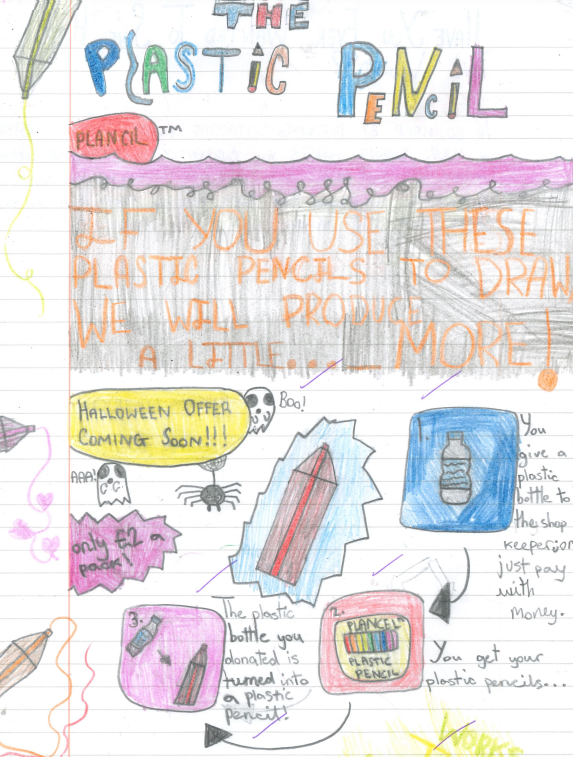 THE
PLASTIC PENCIL
PLANCIL™
IF YOU USE THESE
PLASTIC PENCILS TO DRAW
WE WILL PRODUCE
A LITTLE.... MORE!
HALLOWEEN OFFER
COMING SOON!!!
BOO!
AAA!
only £2 a
pack!
1.
You
give a
plastic
bottle to
the shop
keeper, or
just pay
with
money.
2.
PLANCEL
PLASTIC
PENCIL
You get your
plastic pencils...
3.
The plastic
bottle you
donated is
turned into
a plastic
pencil!
WORKS